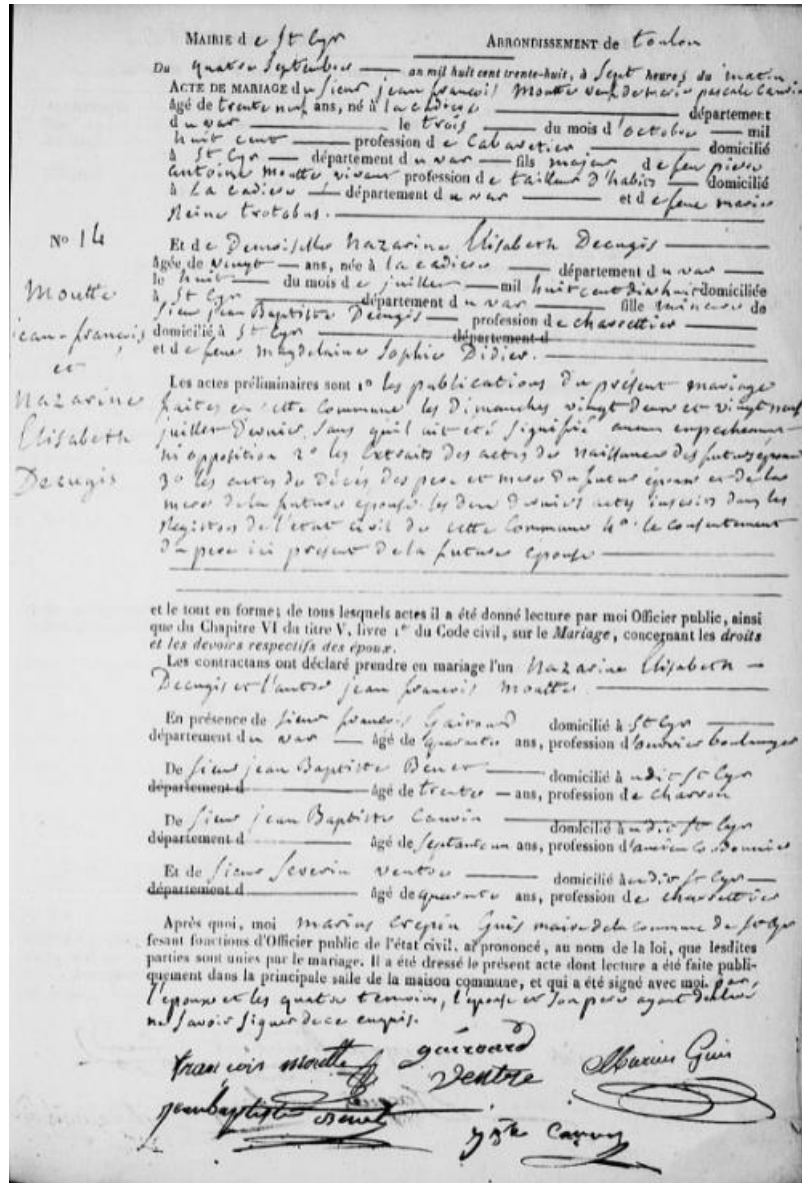 MAIRIE de St Cyr ARRONDISSEMENT de toulon
Du quatre Septembre an mil huit cent trente-huit, à Sept heures du matin
ACTE DE MARIAGE du Sieur jean françois Moutte veuf de marie pascale Cauvin
âgé de trente neuf ans, né à la cadiere département
du var le trois du mois d'octobre mil
huit cent profession de Cabaretier domicilié
à St Cyr département du var fils majeur de feu pierre
antoine moutte vivant profession de tailleur d'habits domicilié
à La cadiere département du var et de feue marie
Reine trotobas.
Et de Demoiselle Nazarine Elisabeth Decugis
âgée de vingt ans, née à la cadiere département du var
le huit du mois de juillet mil huit cent dix huit domiciliée
à St Cyr département du var fille mineure de
Sieur jean Baptiste Decugis profession de charrettier
domicilié à St Cyr département d
et de feue magdelaine Sophie Didier.
No 14
Moutte
jean-françois
et
Nazarine
Elisabeth
Decugis
Les actes préliminaires sont 1o les publications du présent mariage
faites en cette Commune les Dimanches vingt deux et vingt neuf
juillet Dernier, Sans qu'il ait été Signifié aucun empechement
ni opposition 2o les Extraits des actes de naissance des futurs époux
3o les actes de Décès des pere et mere du futur époux et de la
mere de la future épouse. les deux derniers actes inscrits dans les
Registres de l'etat civil de cette Commune 4o le consentement
du pere ici present de la future épouse
et le tout en forme; de tous lesquels actes il a été donné lecture par moi Officier public, ainsi
que du Chapitre VI du titre V, livre 1er du Code civil, sur le Mariage, concernant les droits
et les devoirs respectifs des époux.
Les contractans ont déclaré prendre en mariage l'un Nazarine Elisabeth
Decugis et l'autre jean francois Moutte.
En présence de Sieur françois Gairoard domicilié à St Cyr
département du var âgé de quarante ans, profession d'ouvrier boulanger
De Sieur jean Baptiste Benet domicilié à udit St Cyr
département d âgé de trente ans, profession de charron
De Sieur jean Baptiste Cauvin domicilié à udit St Cyr
département d âgé de Septante un ans, profession d'ancien Cordonnier
Et de Sieur Severin ventre domicilié à udit St Cyr
département d âgé de quarante ans, profession de charrettier
Après quoi, moi Marius crepin Guis maire de la commune de St Cyr
fesant fonctions d'Officier public de l'état civil, ai prononcé, au nom de la loi, que lesdites
parties sont unies par le mariage. Il a été dressé le présent acte dont lecture a été faite publi-
quement dans la principale salle de la maison commune, et qui a été signé avec moi par
l'époux et les quatre temoins, l'épouse et Son pere ayant declaré
ne Savoir Signer de ce enquis.
françois moutte gairoard Marius Guis
Ventre
jean baptiste Benet